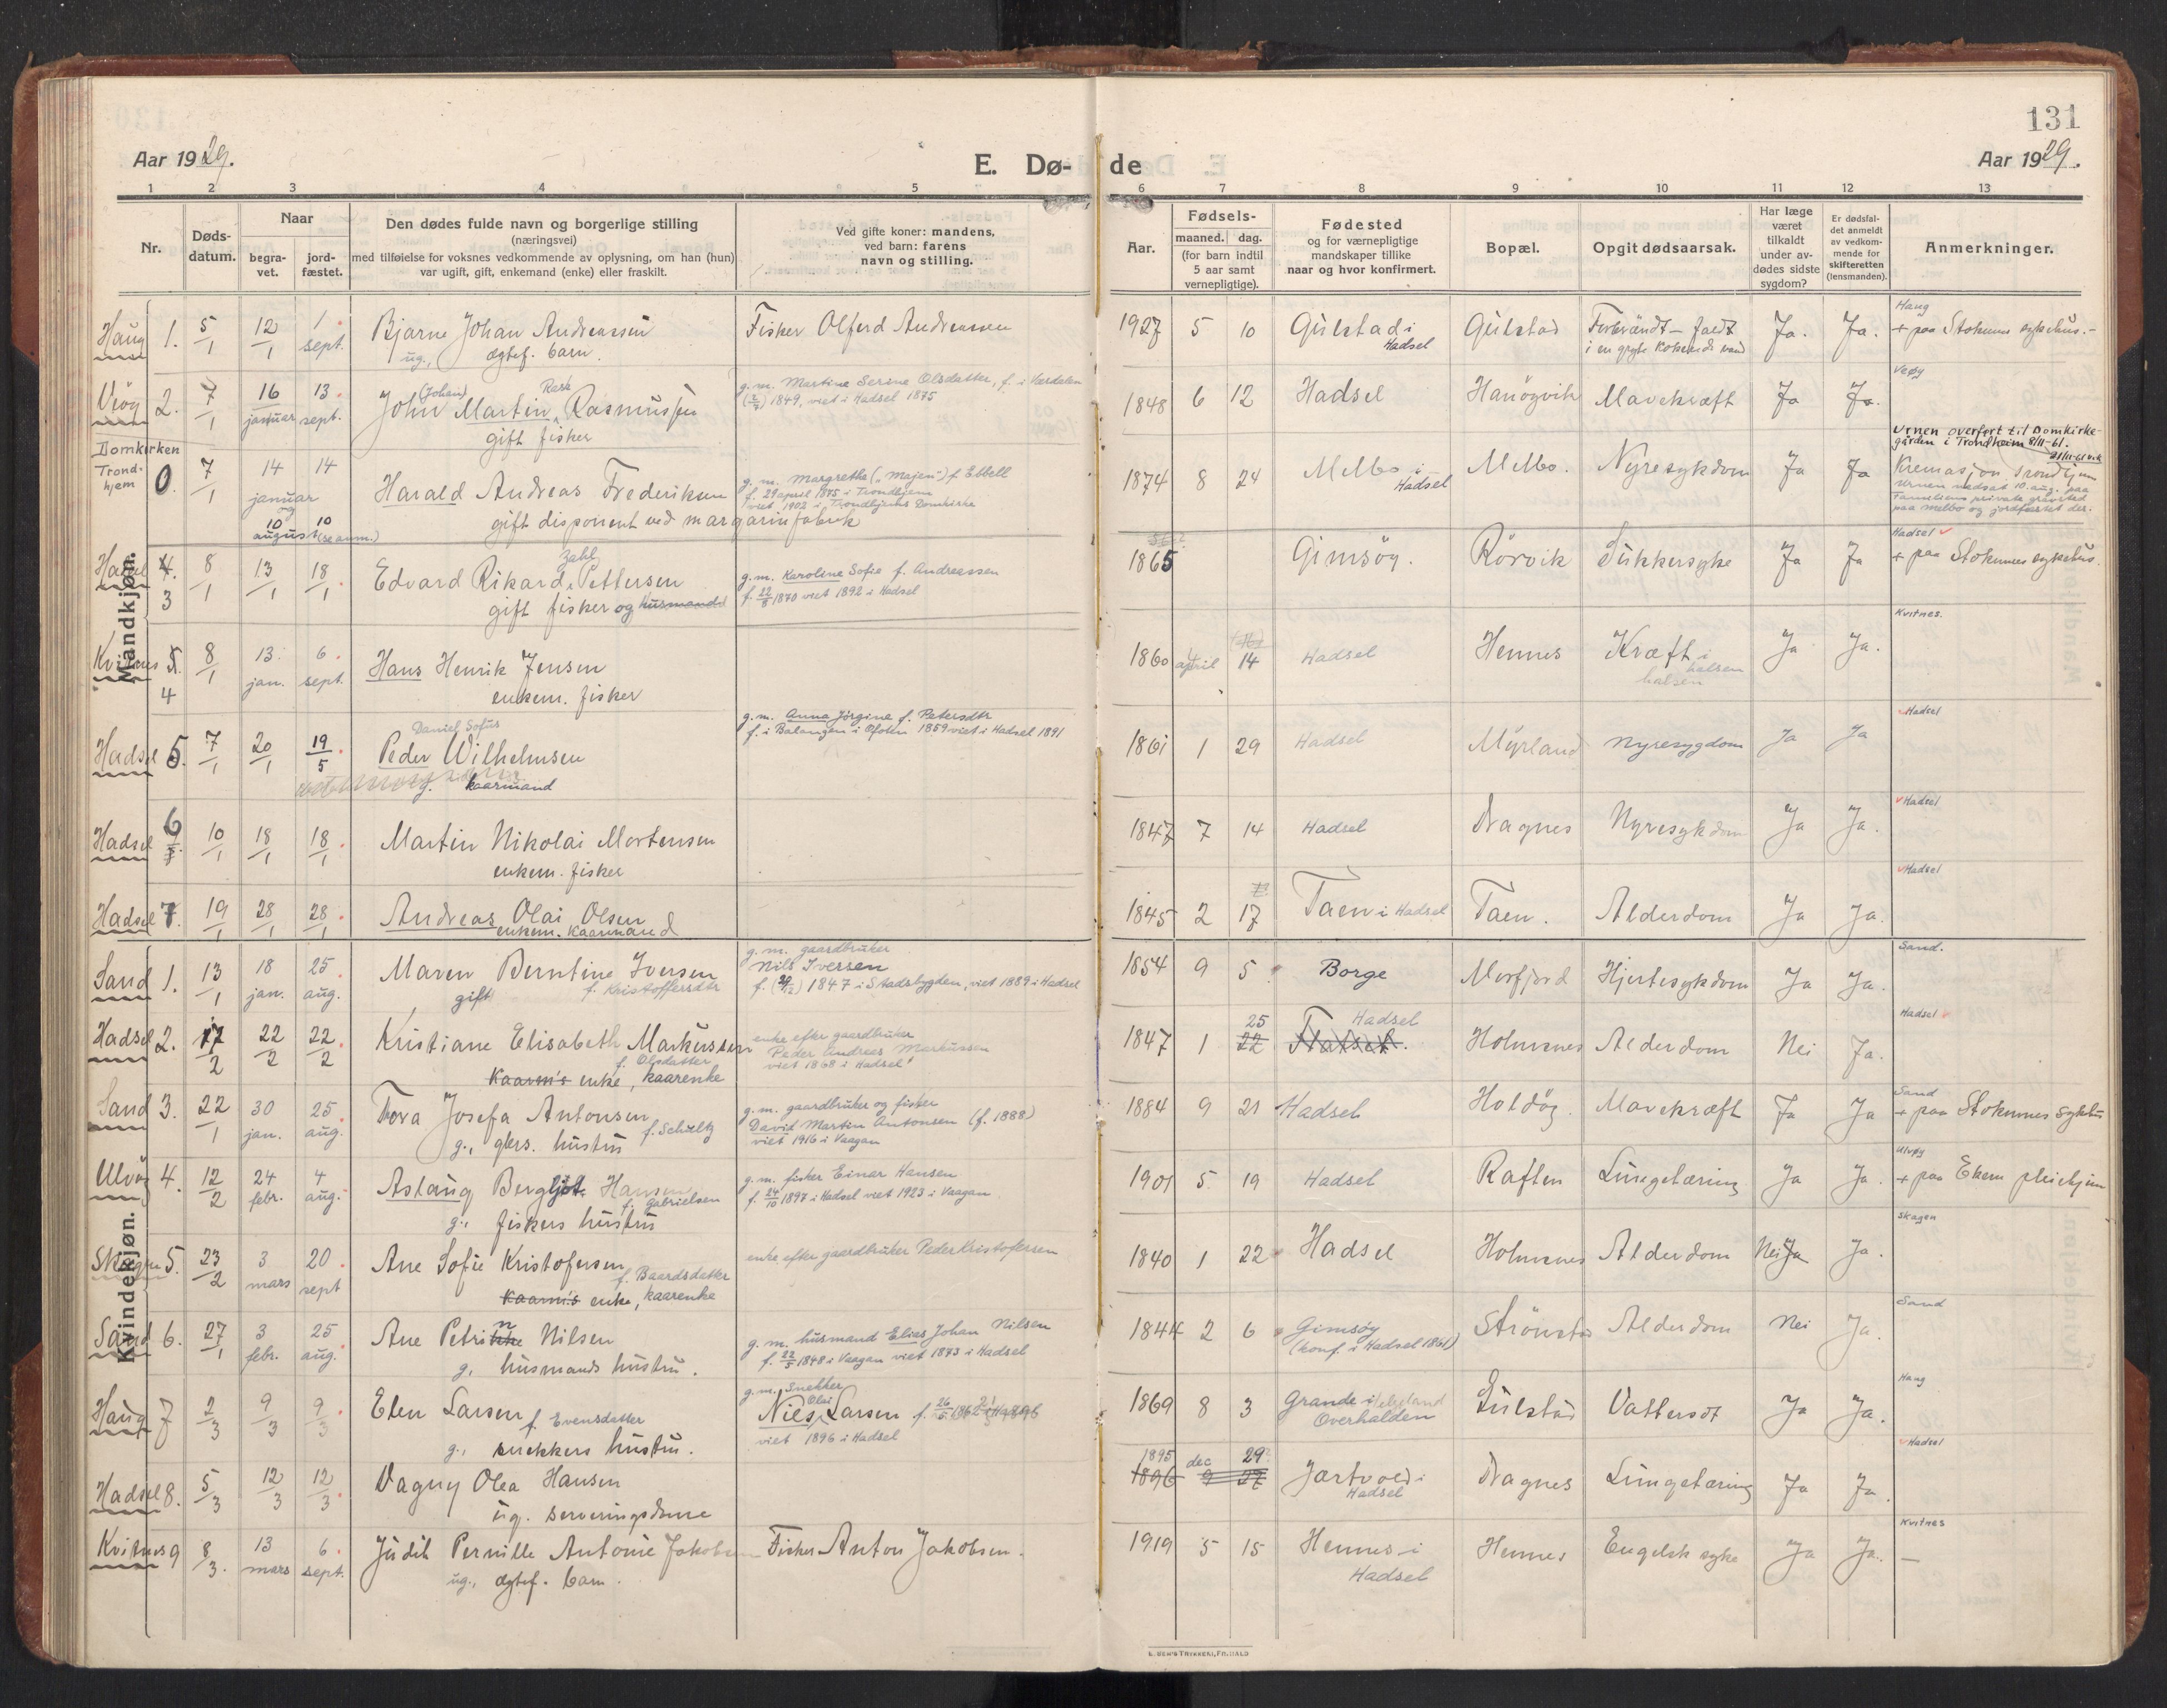 131
Aar 1929.
E. Dø- de
Aar 1929.
1 2 3 4 5 6 7 8 9 10 11 12 13
Nr.
Døds-
datum.
Naar
begra-
vet.
jord-
fæstet.
Den dødes fulde navn og borgerlige stilling
(næringsvei)
med tilføielse for voksnes vedkommende av oplysning, om han (hun)
var ugift, gift, enkemand (enke) eller fraskilt.
Ved gifte koner: mandens,
ved barn: farens
navn og stilling.
Aar.
Fødsels-
maaned. dag.
(for barn indtil
5 aar samt
vernepligtige).
Fødested
og for værnepligtige
mandskaper tillike
naar og hvor konfirmert.
Bopæl.
Opgit dødsaarsak.
Har læge
været
tilkaldt
under av-
dødes sidste
sygdom?
Er dødsfal-
det anmeldt
av vedkom-
mende for
skifteretten
(lensmanden).
Anmerkninger.
Mandkjøn.
Haug 1. 5/1 12/1 1. sept. Bjarne Johan Andreassen Fisker Olferd Andreassen 1927 5 10 Gulstad i Gulstad Forbrændt - faldt Ja. Ja. Haug
ug., ægtef. barn. Hadsel i en gryte kokende vand + paa Stokmnes sykehus.-
Veøy 2. 7/1 16 januar 13. sept. John (Johan) Martin Rask Rasmussen g. m. Martine Serine Olsdatter, f. i Værdalen 1848 6 12 Hadsel Hanøyvik Mavekræft Ja Ja. Veøy
gift fisker 1849, viet i Hadsel 1875
Domkirken
Trond-
hjem 0. 7/1 14 januar 14 Harald Andreas Frederiksen g. m. Margrethe ("Majen") f Ebbell 1874 8 24 Melbo i Hadsel Melbo. Nyresykdom Ja Ja Urnen overført til Domkirke-
og f. 29 april 1875 i Trondhjem gården i Trondheim 8/11-61.
10 august 10 (se anm.) gift disponent ved margarinfabrik viet 1902 i Trondhjems Domkirke Kremasjon Trondhjem
Urnen nedsat 10. aug. paa
Familiens private gravsted
paa Melbo og jordfæstet der.
Hadsel 4. 3 8/1 13/1 18/1 Edvard Rikard Zahl Pettersen g. m. Karoline Sofie f. Andreassen 1865 Gimsøy. Rørvik Sukkersyke Ja Ja Hadsel
gift fisker og husmand f. 22/8 1870 viet 1892 i Hadsel + paa Stokmnes sykehus.
Kvitnes 5. 4 8/1 13. jan. 6. sept. Hans Henrik Jensen 1860 4 april 14 Hadsel Hennes Kræft i halsen Ja Ja. Kvitnes.
enkem. fisker halsen
Hadsel 5. 7/1 20/1 19/5 Peder Daniel Sofus Wilhelmsen g. m. Anna Jørgine f. Petersdtr 1861 1 29 Hadsel Myrland Nyresygdom Ja Ja Hadsel
g. kaarmand f. i Balangen i Ofoten 1859 viet i Hadsel 1891
Hadsel 6 10/1 18/1 18/1 Martin Nikolai Mortensen 1847 7 14 Hadsel Dragnes Nyresykdom Ja Ja. Hadsel
enkem. fisker
Hadsel 7. 19/1 28/1 28/1 Andreas Olai Olsen 1845 2 17 Taen i Hadsel Taen. Alderdom Ja Ja. Hadsel
enkem. kaarmand
Kvindekjøn.
Sand 1. 13/1 18 jan. 25. aug. Maren Berntine Iversen g. m. gaardbruker 1854 9 5 Borge Morfjord Hjertesykdom Ja Ja. Sand.
gift f. Kristoffersdtr Nils Iversen
f. 1847 i Stadsbygden, viet 1889 i Hadsel
Hadsel 2. 17/2 22/2 22/2 Kristiane Elisabeth Markussen enke efter gaardbruker 1847 1 25 22 Hadsel Holmsnes Alderdom Nei Ja. Hadsel
f. Olsdatter Peder Andreas Markussen
Kaarm's enke, kaarenke viet 1868 i Hadsel
Sand 3. 22/1 30 jan. 25. aug. Tora Josefa Antonsen g. m. gaardbruker og fisker 1884 9 21 Hadsel Holdøy. Mavekræft Ja Ja Sand
g., gbrs. hustru f. Schultz David Martin Antonsen (f. 1888) + paa Stokmnes sykehus
viet 1916 i Vaagan
Ulvøy 4. 12/2 24 febr. 4 aug. Aslaug Bergljot Hansen g. m. fisker Einar Hansen 1901 5. 19 Hadsel Raften Lungetæring Ja Ja. Ulvøy
f. Gabrielsen f. 24/10 1897 i Hadsel viet 1923 i Vaagan + paa Ekern pleiehjem
g., fiskers hustru
Skagen 5. 23/2 3 mars 20. sept Ane Sofie Kristofersen enke efter gaardbruker Peder Kristofersen 1840 1 22 Hadsel Holmsnes Alderdom Nei Ja Ja. Skagen
f. Baardsdatter
Kaarm's enke, kaarenke
Sand 6. 27/1 3 febr. 25 aug. Ane Petrine Nilsen g. m. husmand Elias Johan Nilsen 1844 2 6 Gimsøy Strønstad Alderdom Nei Ja. Sand
g. husmands hustru. f. 22/5 1848 i Vaagan viet 1873 i Hadsel (konf. i Hadsel 1861)
Haug 7 2/3 9/3 9/3 Elen Larsen f. Evensdatter g. m. Snekker 1869 8 3 Grande i Gulstad Vattersot Ja Ja. Haug
g., snekkers hustru. Niels Olai Larsen f. 26/5 1862 Overhalden
viet 1896 i Hadsel
Hadsel 8. 5/3 12/3 12/3 Dagny Olea Hansen 1895 1896 dec 9 29 27 Jartvold i Hadsel Dragnes Lungetæring Ja Ja. Hadsel
ug. serveringsdame
Kvitnes 9 8/3. 13 mars 6. sept. Judit Pernille Antonie Jakobsen Fisker Anton Jakobsen. 1919 5 15 Hennes i Hennes Engelsk syke Ja Ja. Kvitnes
ug., ægtef. barn. Hadsel —